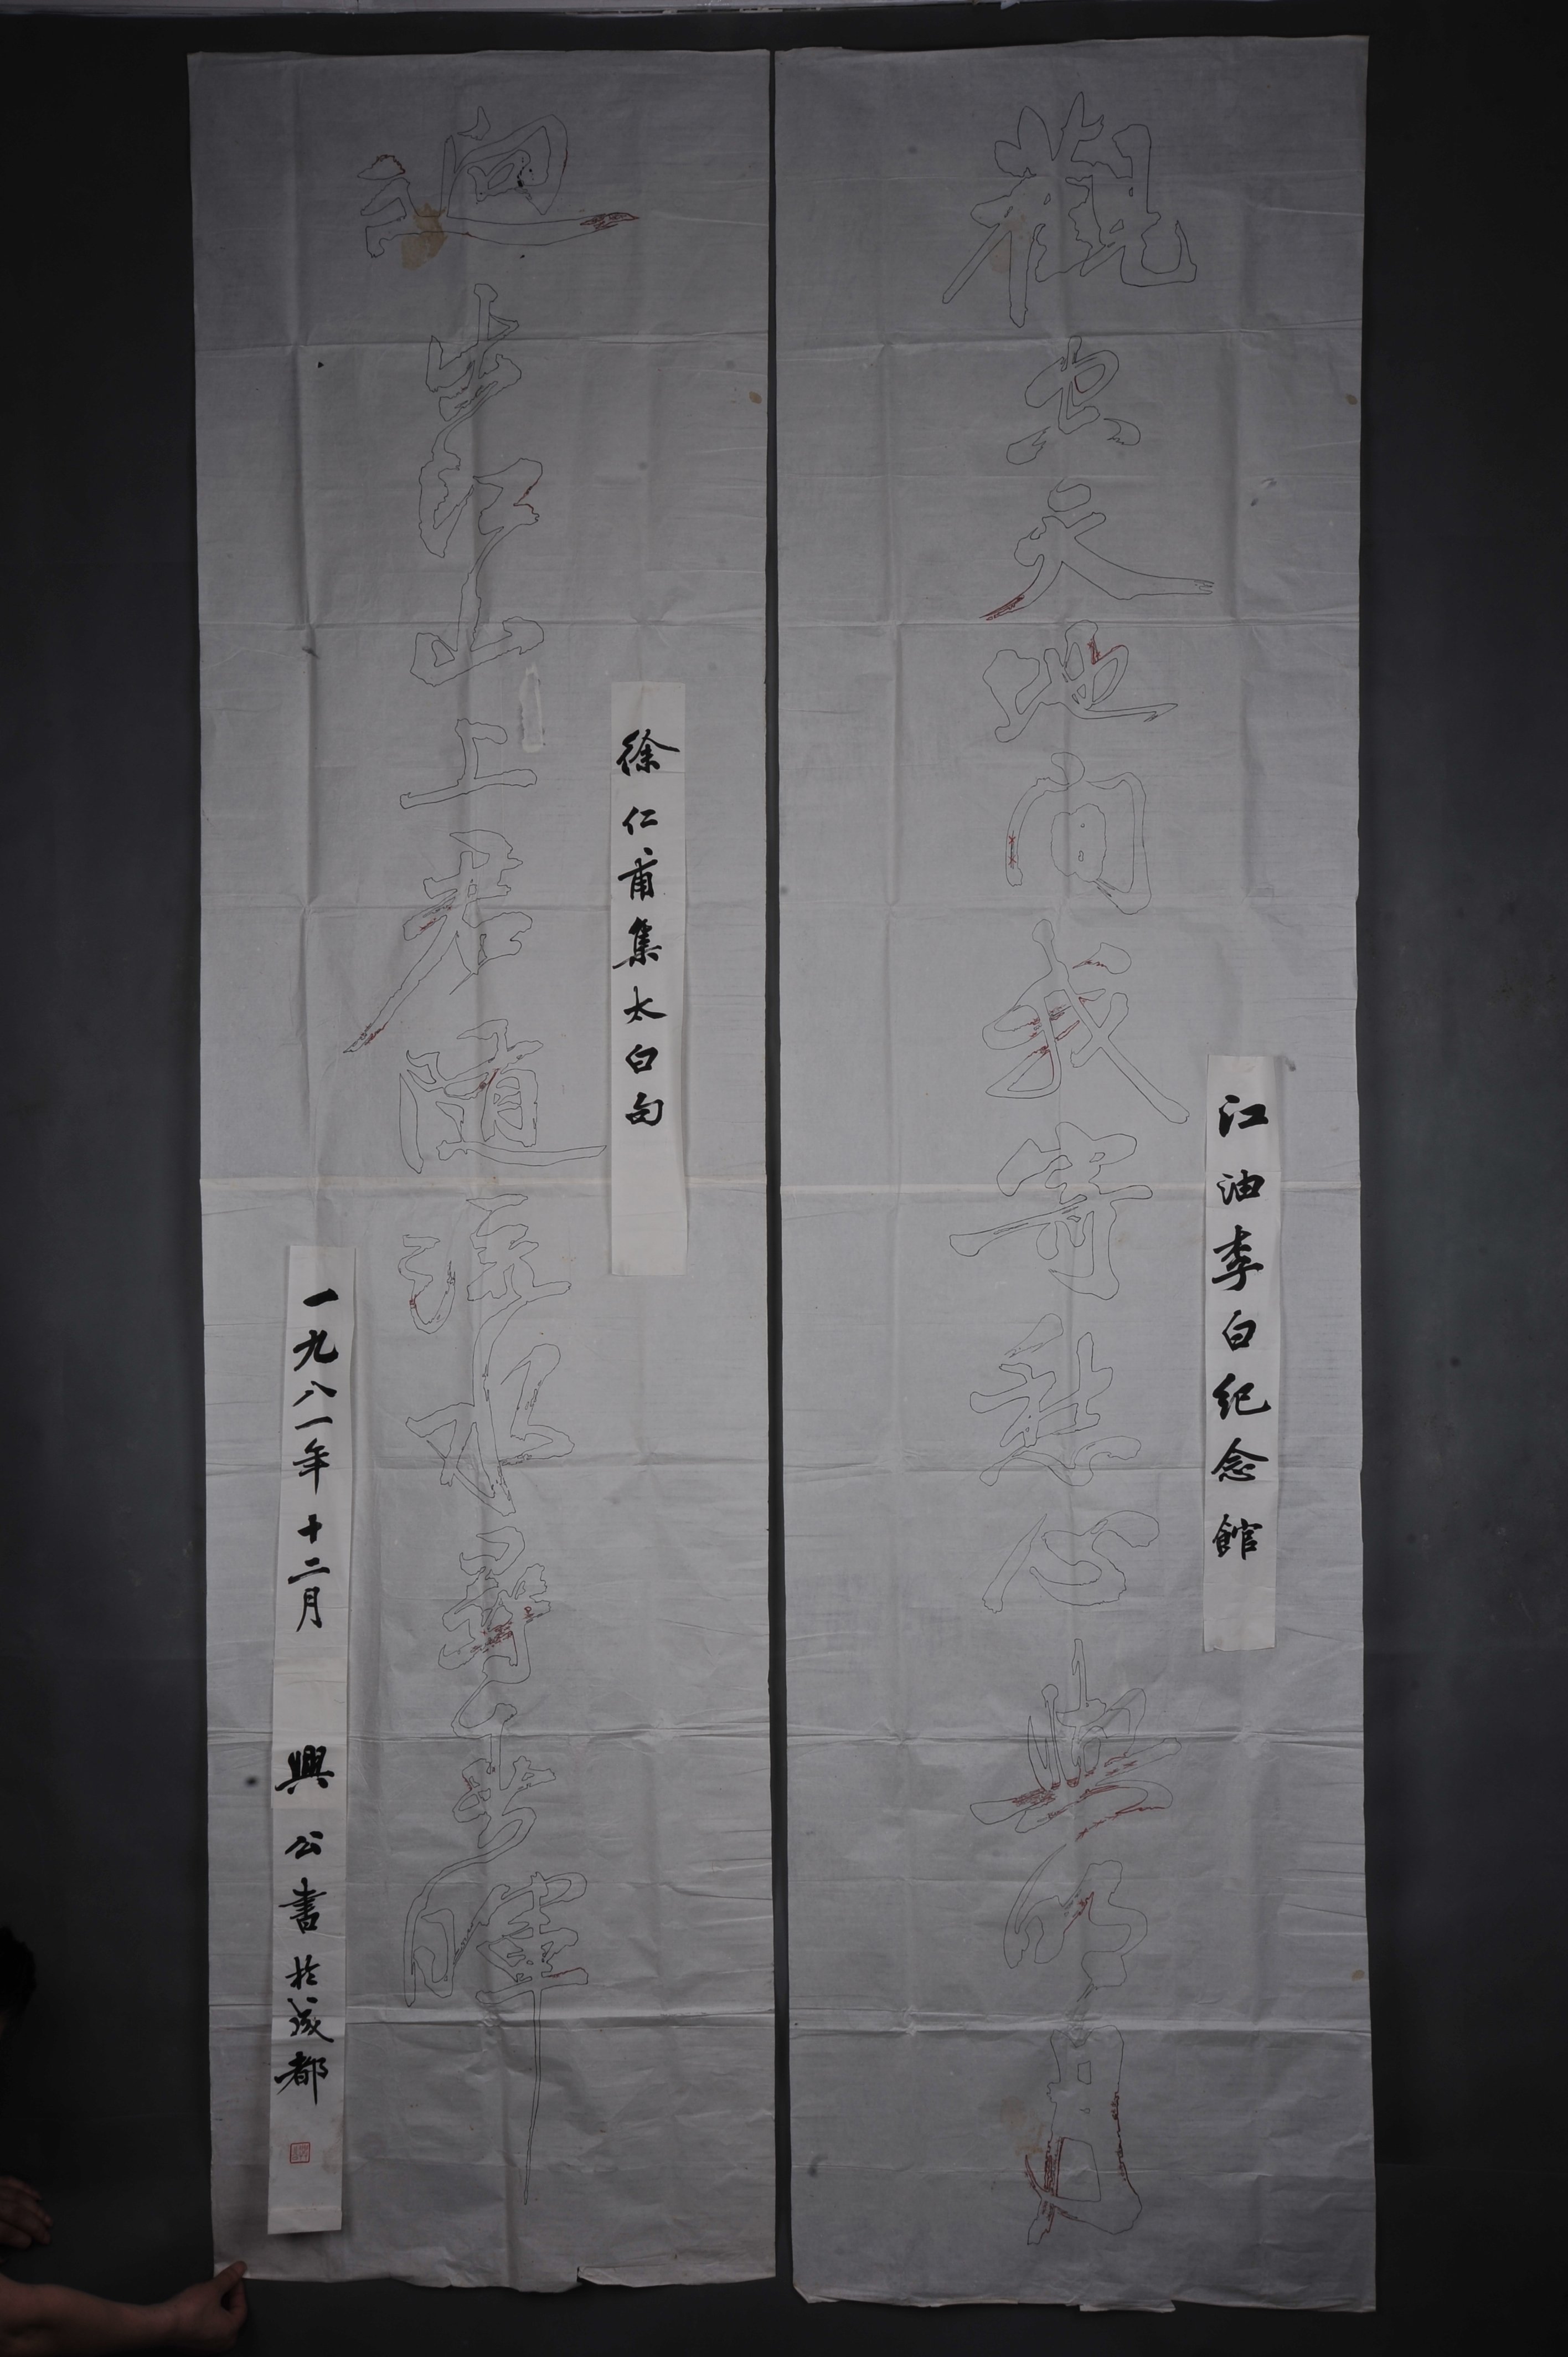 江油李白紀念館
觀空天地間我寄愁心與明月
徐仁甫集太白句
迥出江山上君隨流水暉
一九八一年十二月 興公書於成都